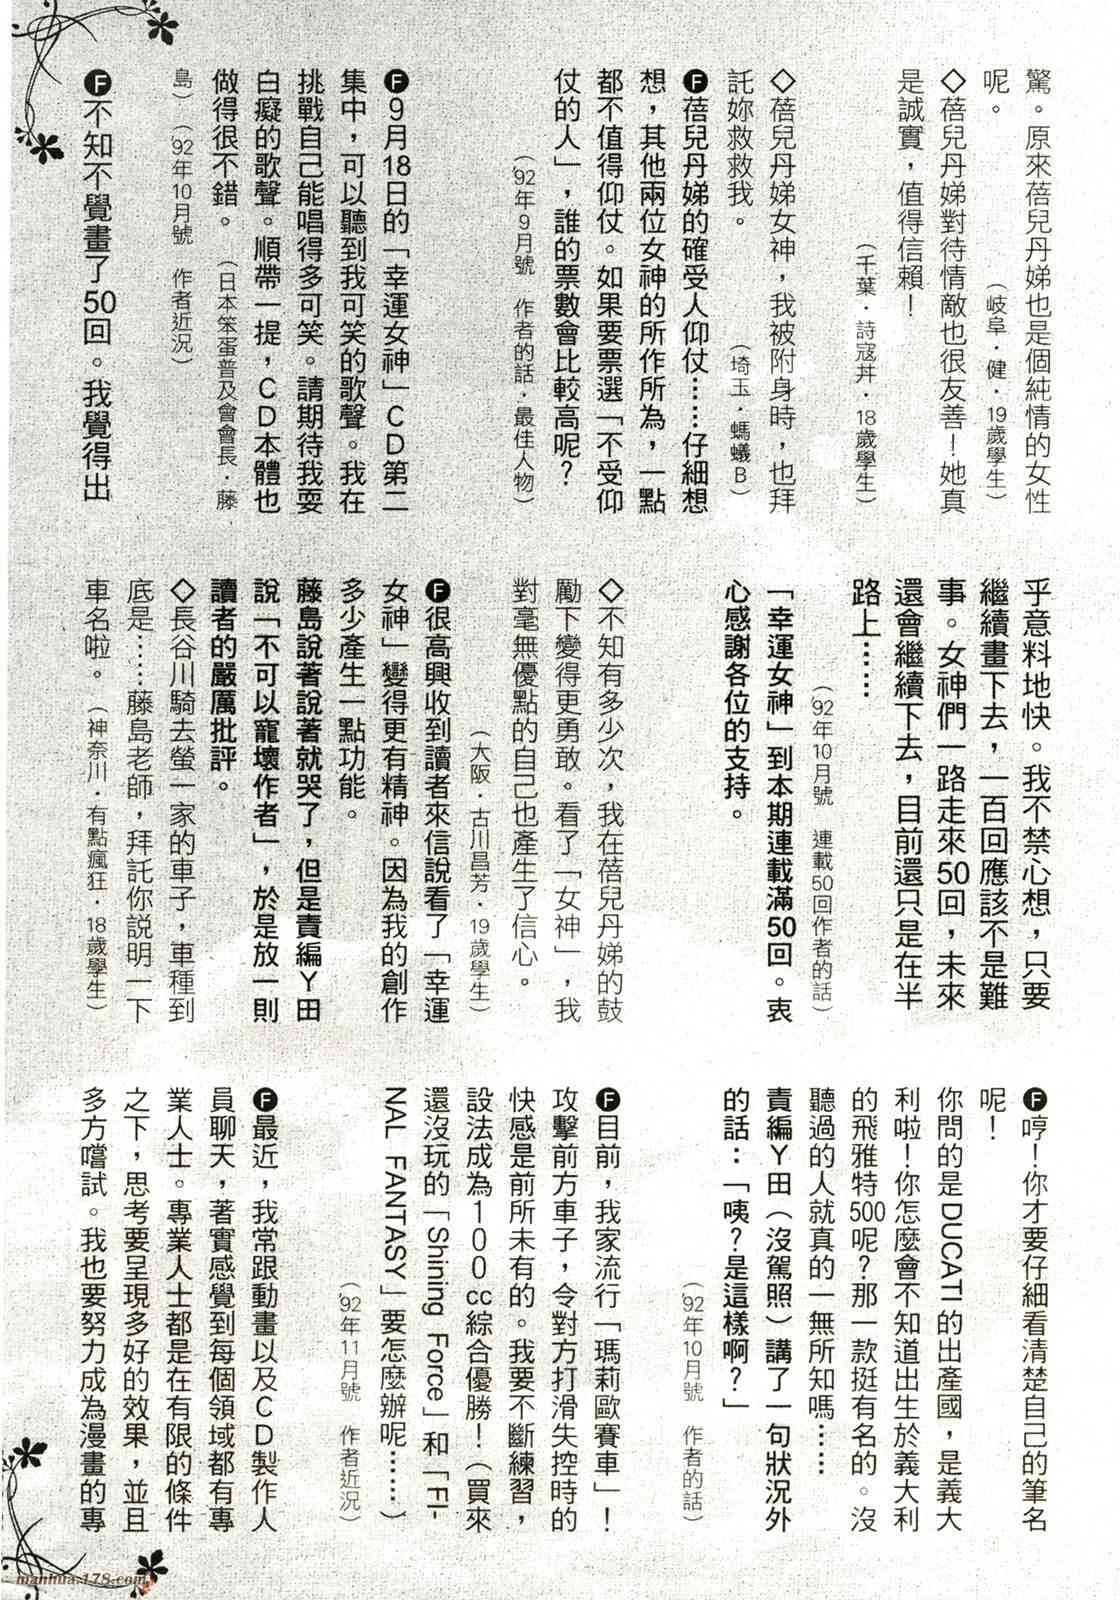 驚。原來蓓兒丹娣也是個純情的女性
呢。
（岐阜．健．19歲學生）
◇蓓兒丹娣對待情敵也很友善！她真
是誠實，值得信賴！
（千葉．詩寇丼．18歲學生）
◇蓓兒丹娣女神，我被附身時，也拜
託妳救救我。
（埼玉．螞蟻B）
Ⓕ蓓兒丹娣的確受人仰仗……仔細想
想，其他兩位女神的所作所為，一點
都不值得仰仗。如果要票選「不受仰
仗的人」，誰的票數會比較高呢？
（'92年9月號　作者的話．最佳人物）
Ⓕ9月18日的「幸運女神」CD第二
集中，可以聽到我可笑的歌聲。我在
挑戰自己能唱得多可笑。請期待我耍
白癡的歌聲。順帶一提，CD本體也
做得很不錯。
（日本笨蛋普及會會長．藤
島）（'92年10月號　作者近況）
Ⓕ不知不覺畫了50回。我覺得出
乎意料地快。我不禁心想，只要
繼續畫下去，一百回應該不是難
事。女神們一路走來50回，未來
還會繼續下去，目前還只是在半
路上……
（'92年10月號　連載50回作者的話）
「幸運女神」到本期連載滿50回。衷
心感謝各位的支持。
◇不知有多少次，我在蓓兒丹娣的鼓
勵下變得更勇敢。看了「女神」，我
對毫無優點的自己也產生了信心。
（大阪．古川昌芳．19歲學生）
Ⓕ很高興收到讀者來信說看了「幸運
女神」變得更有精神。因為我的創作
多少產生一點功能。
藤島說著說著就哭了，但是責編Y田
說「不可以寵壞作者」，於是放一則
讀者的嚴厲批評。
◇長谷川騎去螢一家的車子，車種到
底是……藤島老師，拜託你說明一下
車名啦。
（神奈川．有點瘋狂．18歲學生）
Ⓕ哼！你才要仔細看清楚自己的筆名
呢！
你問的是DUCATI的出產國，是義大
利啦！你怎麼會不知道出生於義大利
的飛雅特500呢？那一款挺有名的。沒
聽過的人就真的一無所知嗎……
責編Y田（沒駕照）講了一句狀況外
的話：「咦？是這樣啊？」
（'92年10月號　作者的話）
Ⓕ目前，我家流行「瑪莉歐賽車」！
攻擊前方車子，令對方打滑失控時的
快感是前所未有的。我要不斷練習，
設法成為100cc綜合優勝！（買來
還沒玩的「Shining Force」和「FI-
NAL FANTASY」要怎麼辦呢……）
（'92年11月號　作者近況）
Ⓕ最近，我常跟動畫以及CD製作人
員聊天，著實感覺到每個領域都有專
業人士。專業人士都是在有限的條件
之下，思考要呈現多好的效果，並且
多方嚐試。我也要努力成為漫畫的專
manhua.178.com